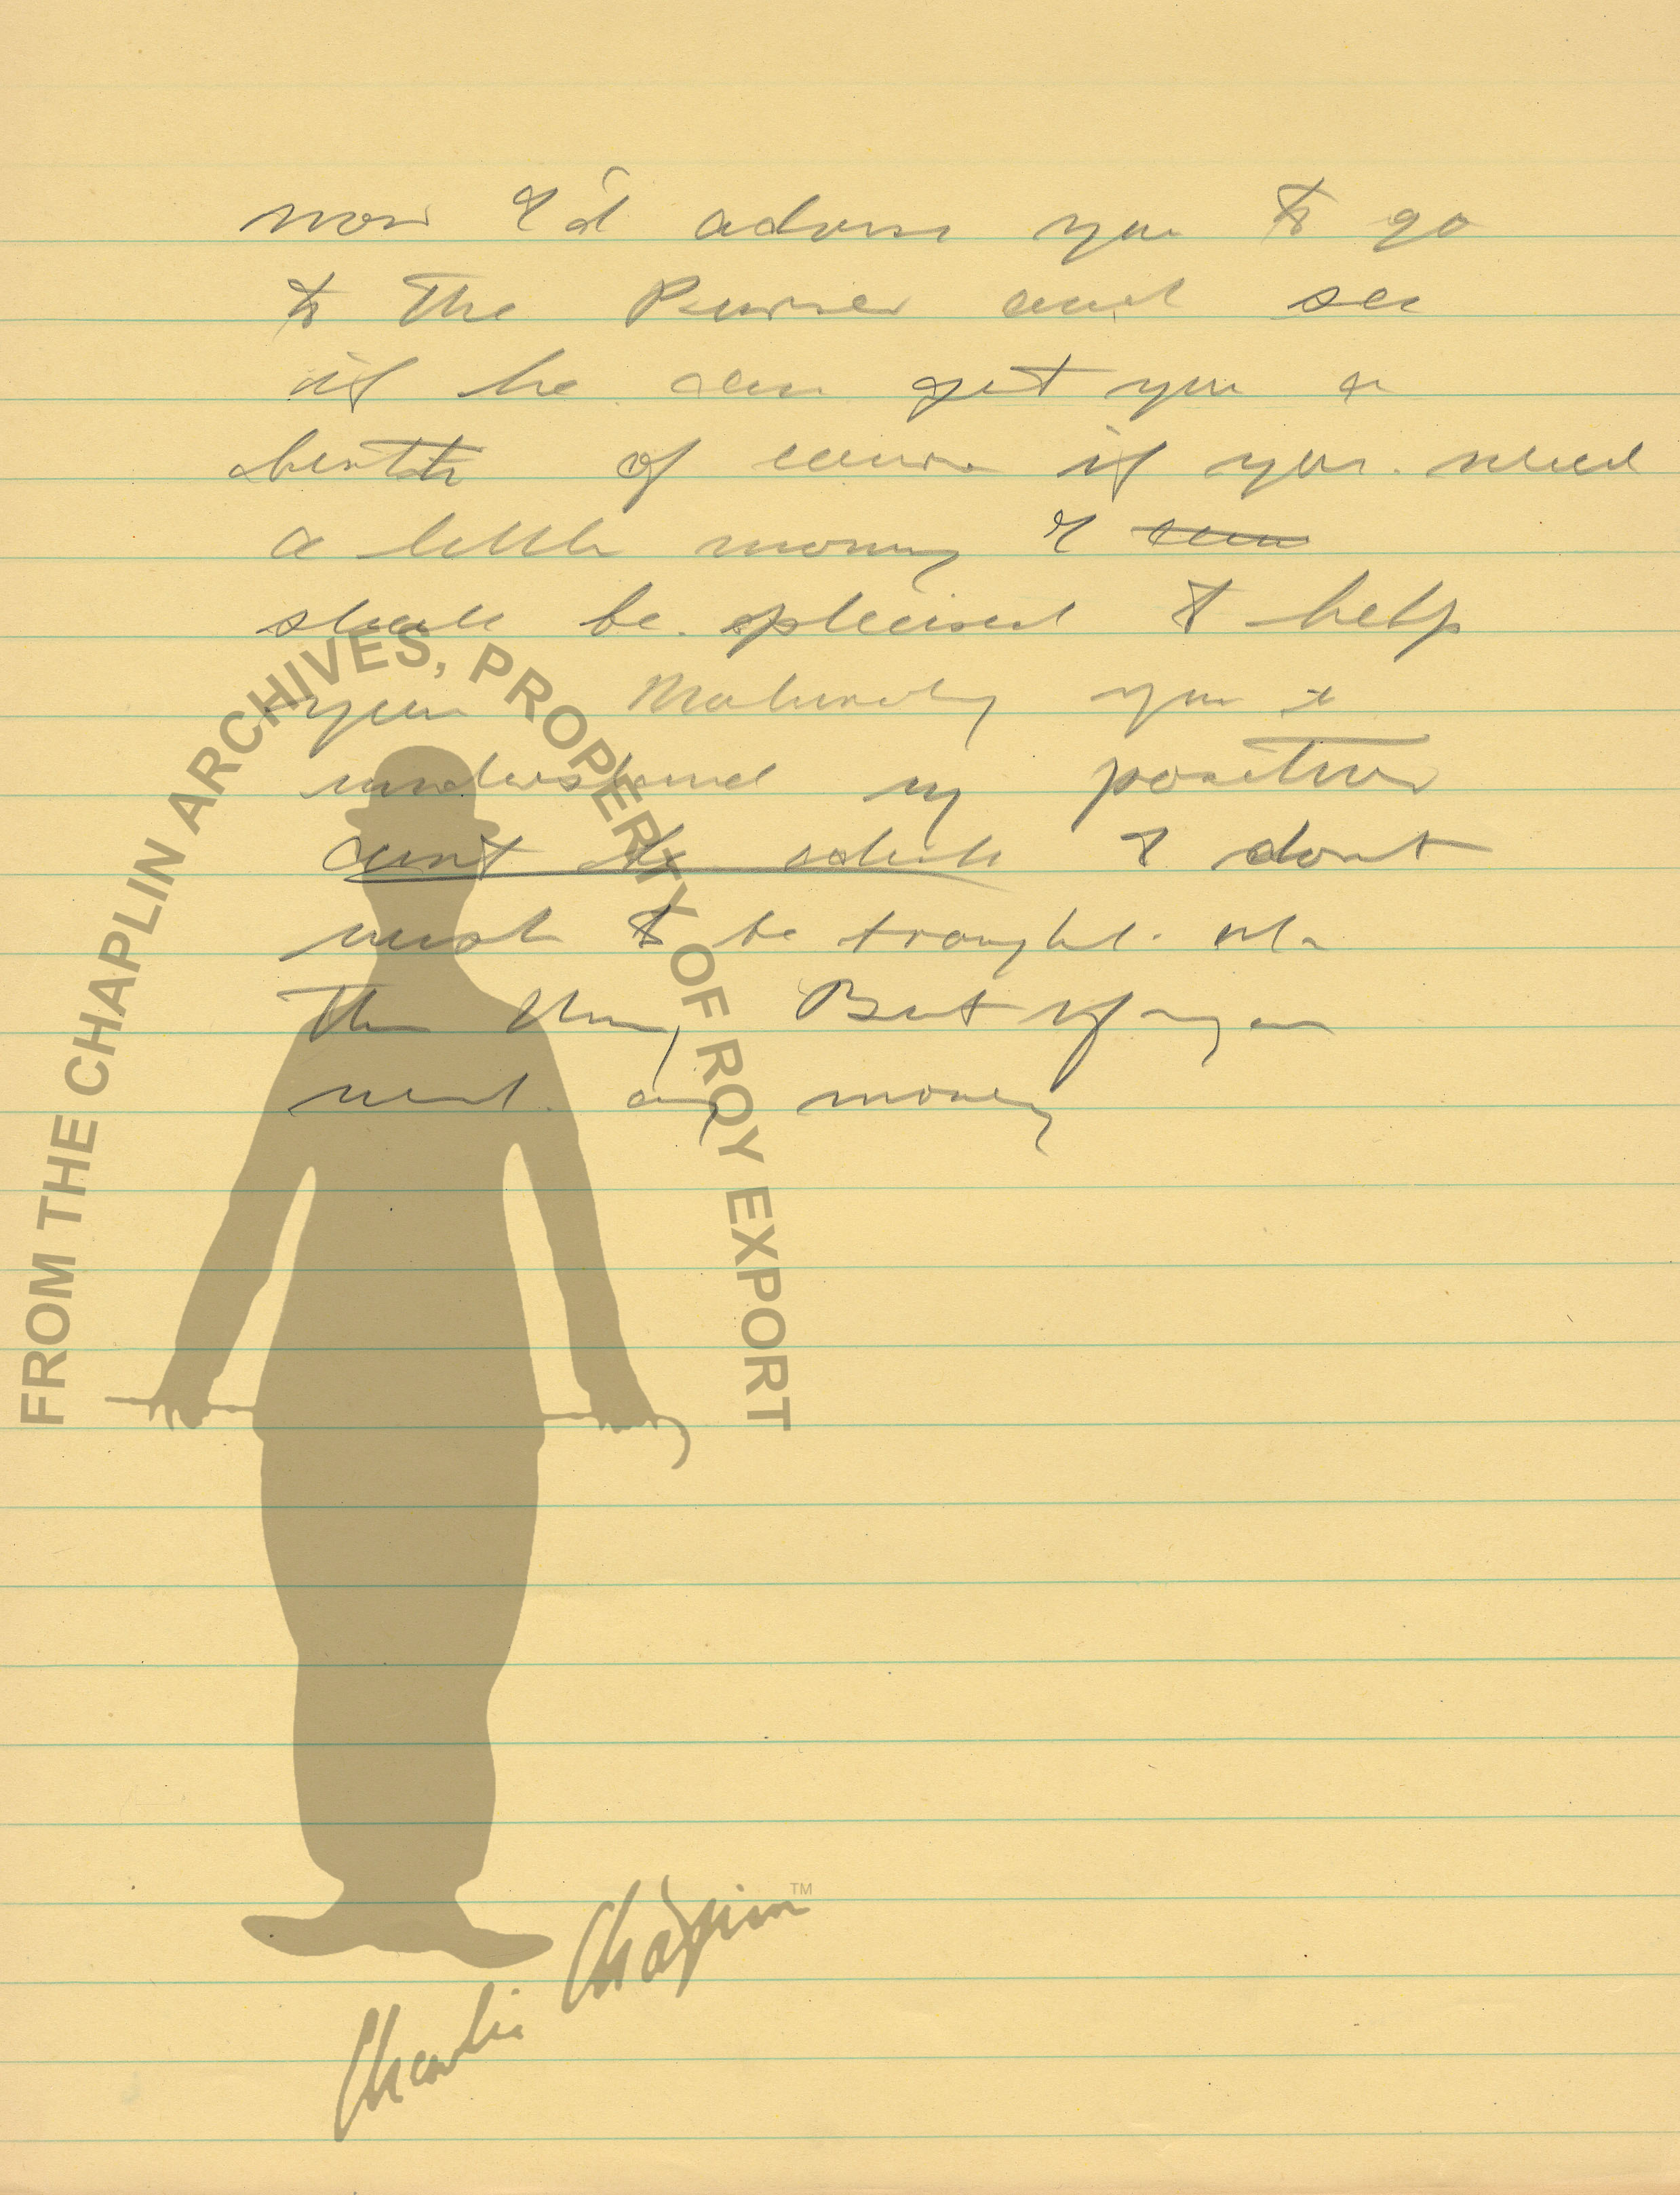 now I'd advise you to go
to the Purser and see
if he can get you a
berth of course if you need
a little money I
shall be pleased to help
you Naturally you
understand my position
and I dont
wish to be
the But if you
need any money
FROM THE CHAPLIN ARCHIVES, PROPERTY OF ROY EXPORT
Charlie Chaplin™